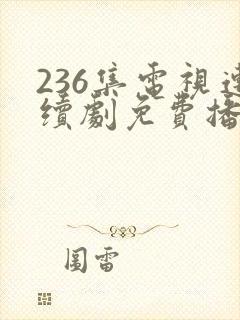 236集電視連
續劇免費播
圖雷